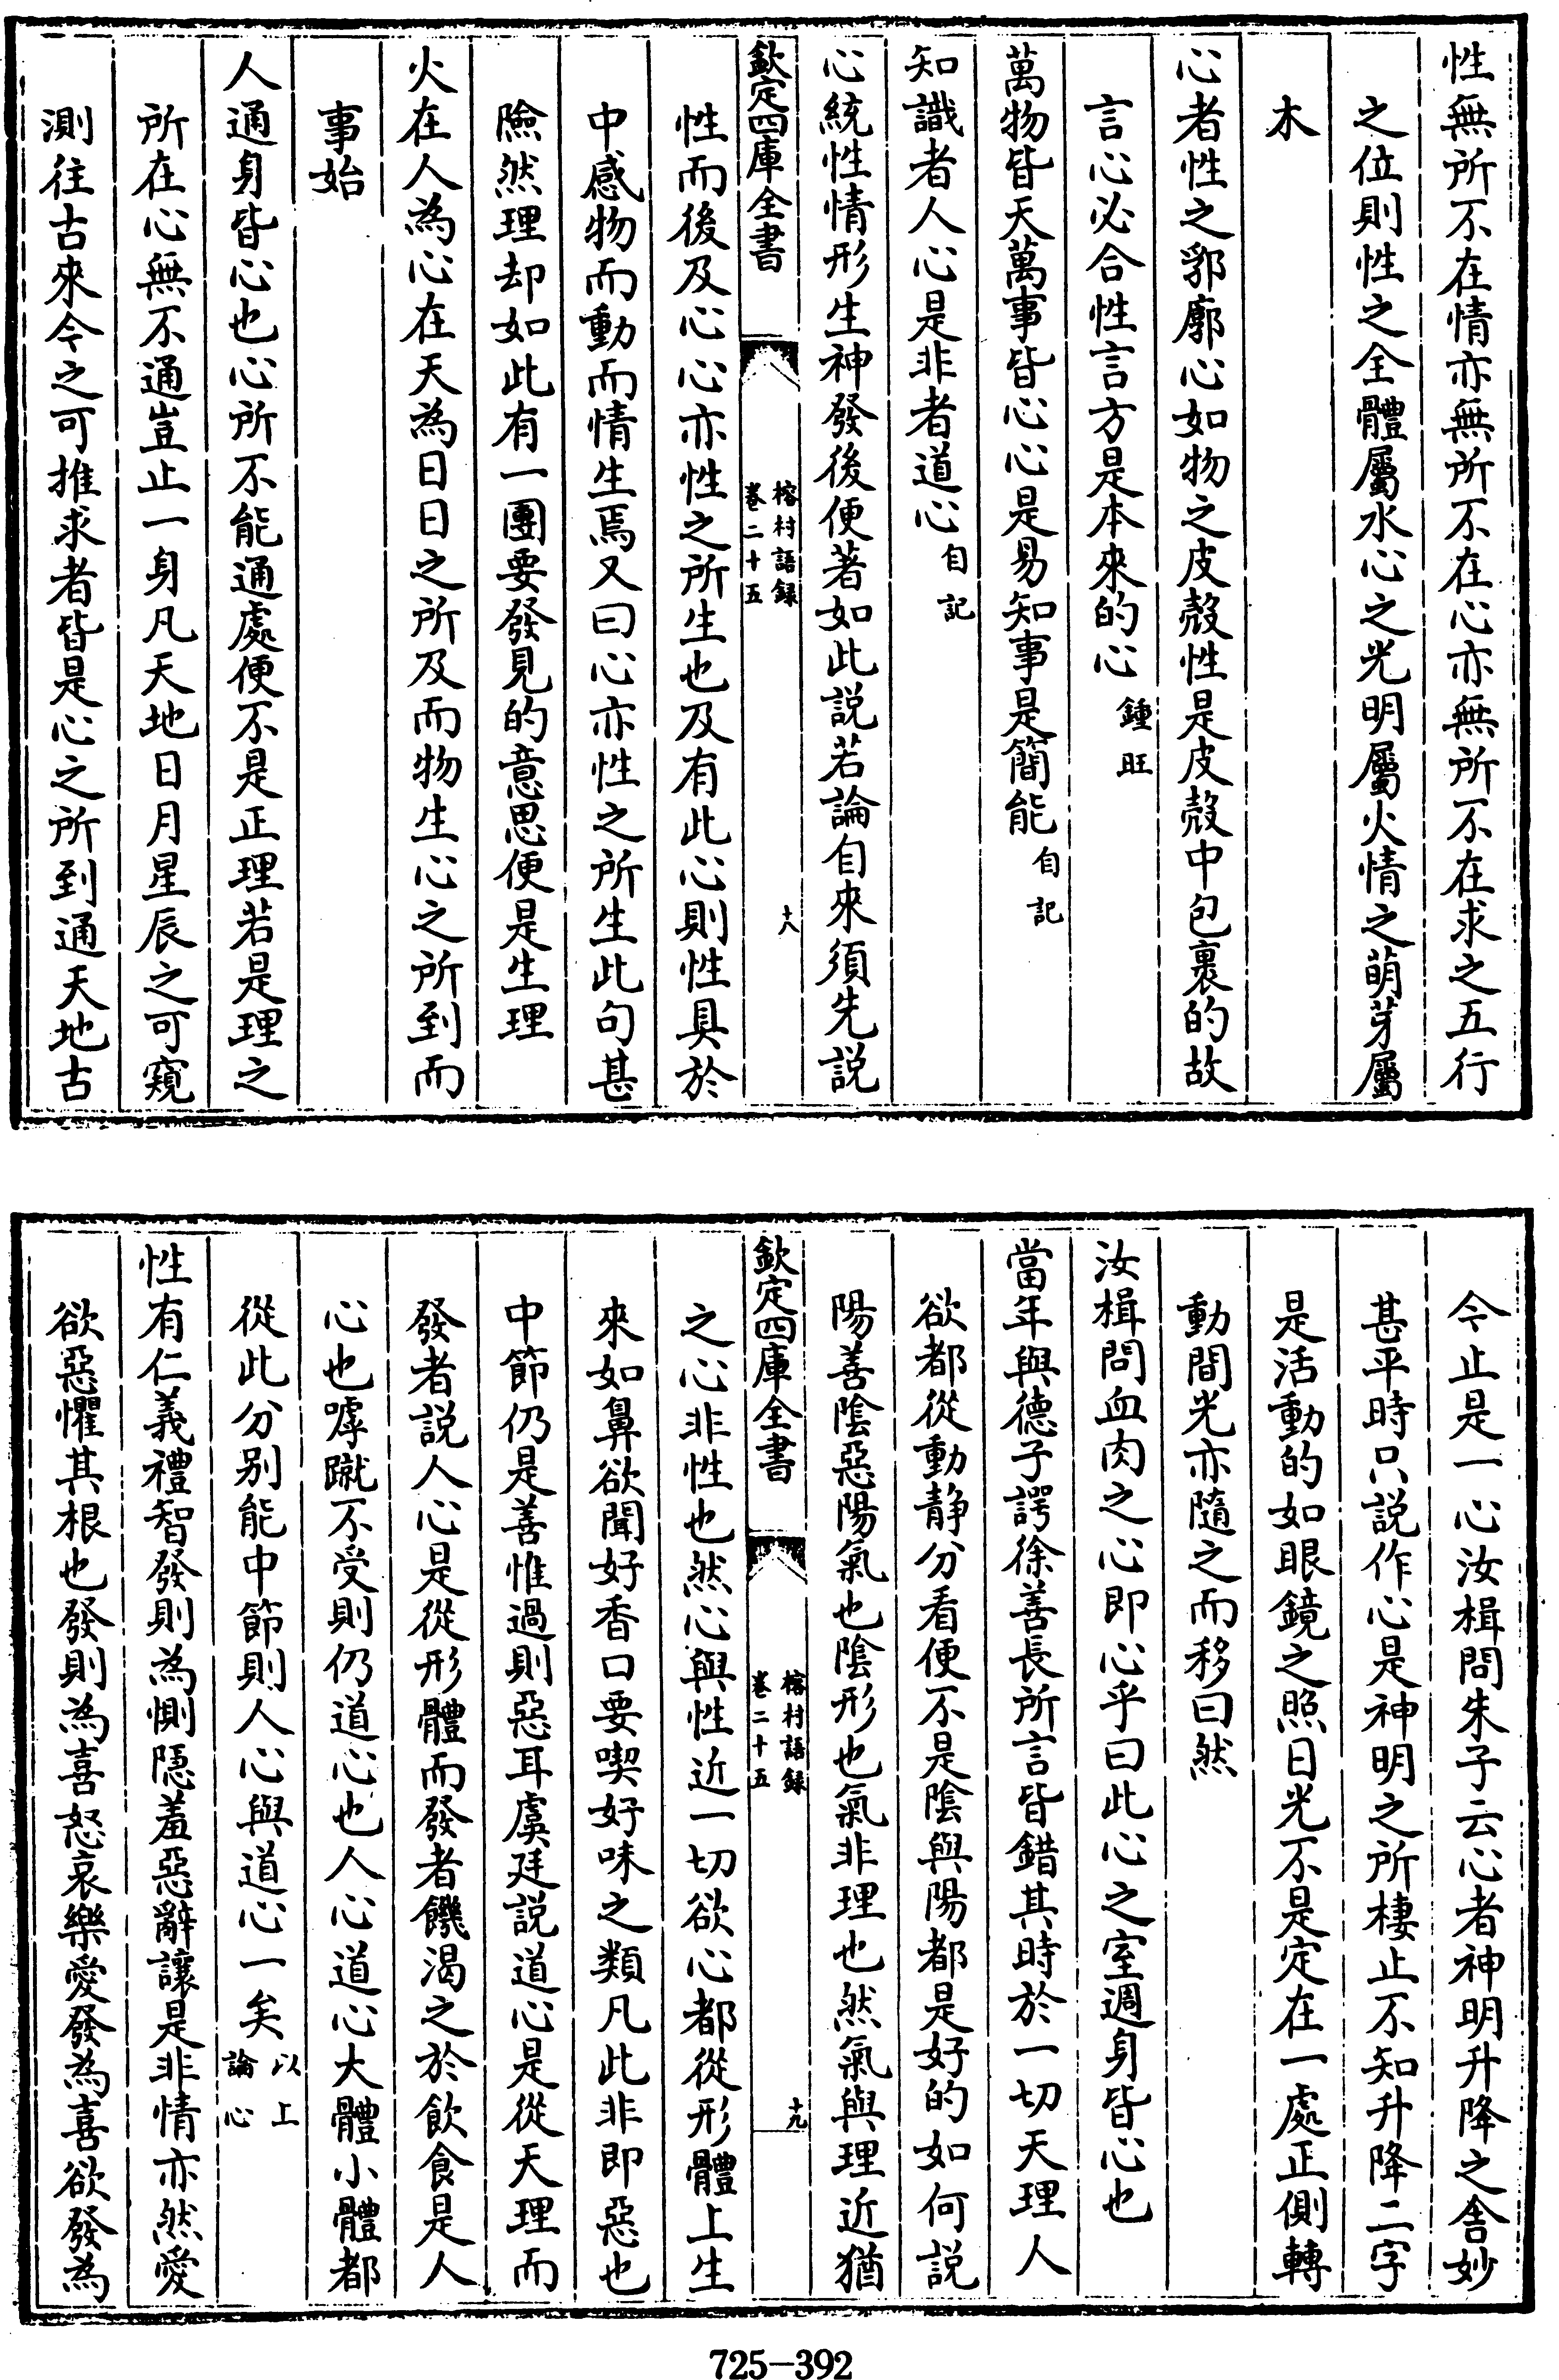 性無所不在情亦無所不在心亦無所不在求之五行
之位則性之全體屬水心之光明屬火情之萌芽屬
木
心者性之郛廓心如物之皮殼性是皮殼中包裹的故
言心必合性言方是本來的心鍾旺
萬物皆天萬事皆心心是易知事是簡能自記
知識者人心是非者道心自記
心統性情形生神發後便著如此説若論自來須先説
欽定四庫全書
榕村語録
卷二十五
十八
性而後及心心亦性之所生也及有此心則性具於
中感物而動而情生焉又曰心亦性之所生此句甚
險然理却如此有一團要發見的意思便是生理
火在人為心在天為日日之所及而物生心之所到而
事始
人通身皆心也心所不能通處便不是正理若是理之
所在心無不通豈止一身凡天地日月星辰之可窺
測往古來今之可推求者皆是心之所到通天地古
今止是一心汝楫問朱子云心者神明升降之舍妙
甚平時只説作心是神明之所棲止不知升降二字
是活動的如眼鏡之照日光不是定在一處正側轉
動間光亦隨之而移曰然
汝楫問血肉之心即心乎曰此心之室週身皆心也
當年與德子諤徐善長所言皆錯其時於一切天理人
欲都從動静分看便不是陰與陽都是好的如何説
陽善陰惡陽氣也陰形也氣非理也然氣與理近猶
欽定四庫全書
榕村語録
卷二十五
十九
之心非性也然心與性近一切欲心都從形體上生
來如鼻欲聞好香口要喫好味之類凡此非即惡也
中節仍是善惟過則惡耳虞廷説道心是從天理而
發者説人心是從形體而發者饑渴之於飲食是人
心也嘑蹴不受則仍道心也人心道心大體小體都
從此分别能中節則人心與道心一矣以上
論心
性有仁義禮智發則為惻隱羞惡辭讓是非情亦然愛
欲惡懼其根也發則為喜怒哀樂愛發為喜欲發為
725-392